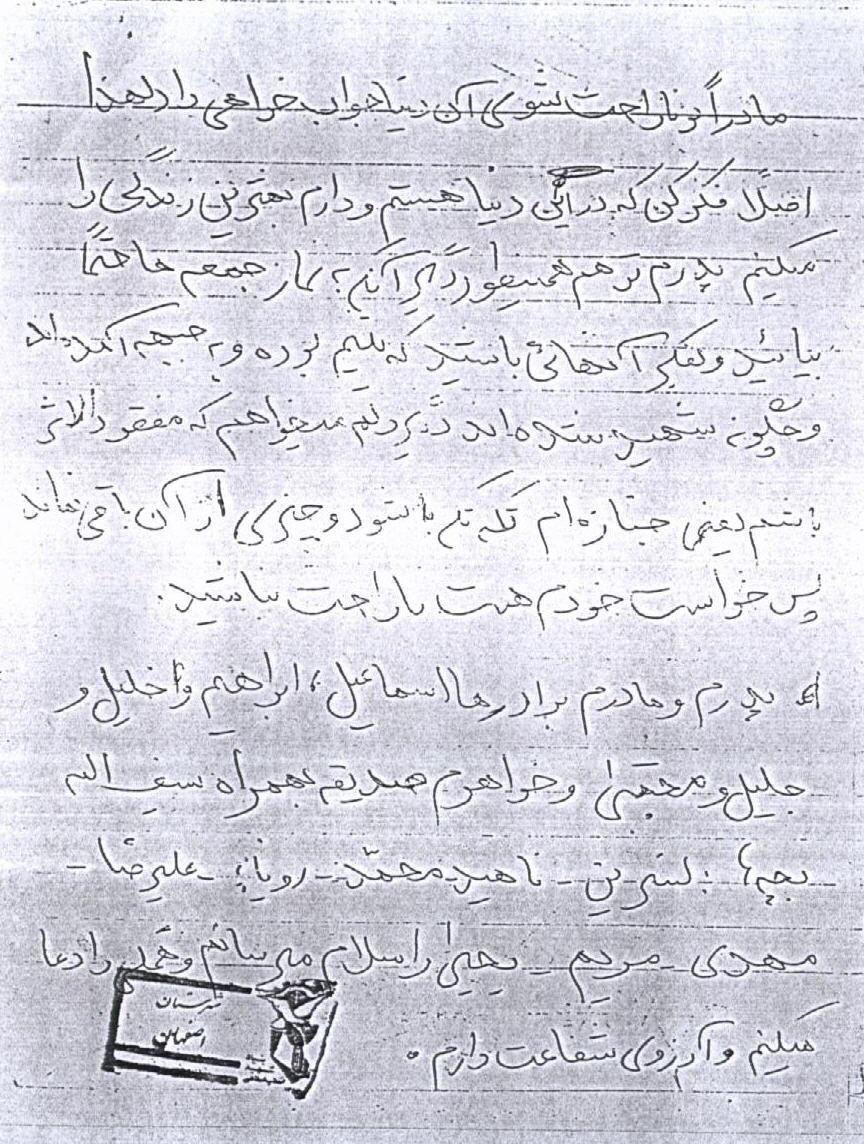 مادر اگر تو ناراحت شوی آن دنیا جواب خواهی داد لهذا
اصلاً فکر کن که در این دنیا هستم و دارم بهترین زندگی را
میکنم پدرم تو هم همینطور دیگر آنکه به نماز جمعه ها حتماً
بیائید و بفکر آنهائی باشید که یتیم بوده و به جبهه آمده‌اند
و چگونه شهید شده‌اند دیگر دلم میخواهم که مفقودالاثر
باشم یعنی جنازه‌ام تکه تکه باشود و چیزی از آن باقی نماند
پس خواست خودم هست ناراحت نباشید.
پدرم و مادرم برادرها اسماعیل، ابراهیم و خلیل و
جلیل و مجتبی و خواهرم صدیقه بهمراه سیف اله
بچه‌ها: نسرین - ناهید - محمد - رویا - علیرضا -
مهدی - مریم - یحیی را سلام میرسانم و همه را دعا
میکنم و آرزوی شفاعت دارم.
شهرستان
اصفهان